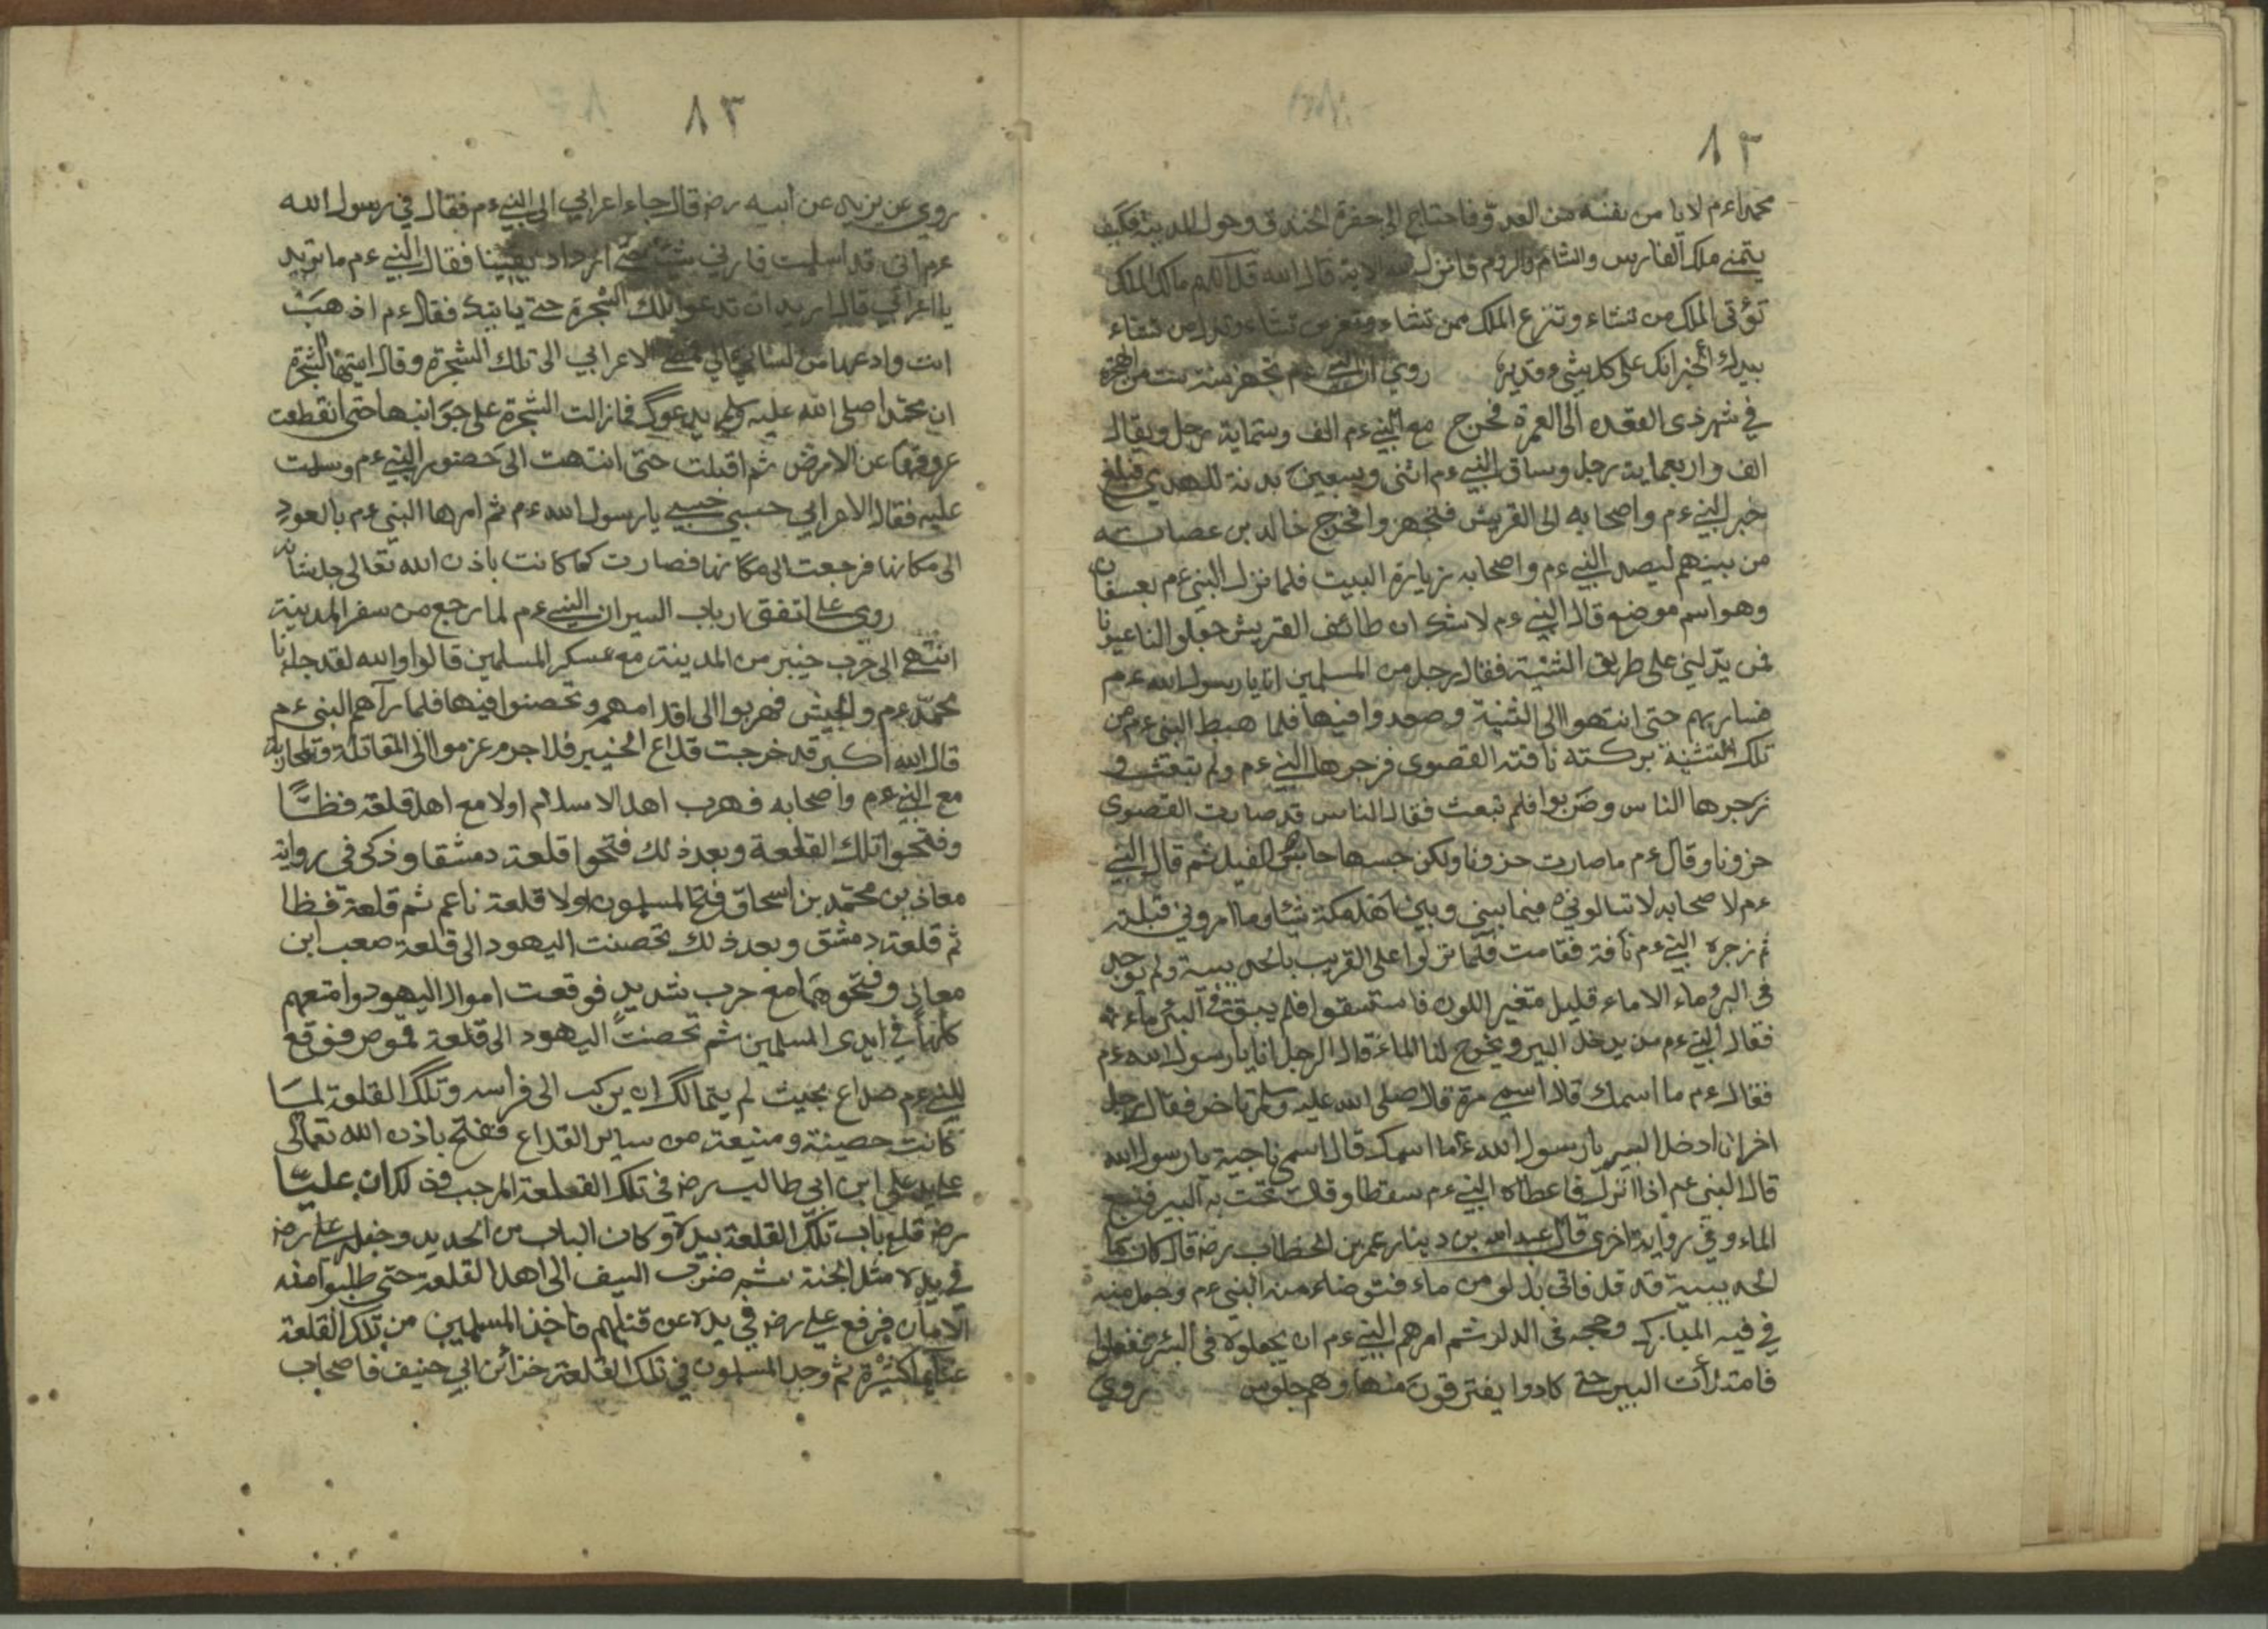 ٨٢
محمدا ءم لا يامن بفسه من العدو فاحتاج الى حفرة الخندق وحول المدينة فكيف
يتمنى ملك الفارس والشام والروم فانزل الله الاية قال الله قل اللهم مالك الملك
تؤتى الملك من تشاء وتنزع الملك ممن تشاء وتعز من تشاء وتذل من تشاء
بيدك الخير انك على كل شئ قدير روي ان النبي ءم تجهز سنة ست من الهجرة
في شهر ذى القعده الى العمرة فخرج مع النبي ءم الف وستماية رجل ويقال
الف واربعماية رجل وساق النبي ءم اثنى وسبعين بدنة للهدي فبلغ
خبر النبي ءم واصحابه الى القريش فتجهزوا فخرج خالد بن عصابه
من بينهم ليصد النبي ءم واصحابه زيارة البيت فلما نزل النبي ءم بعسفان
وهو اسم موضع قال النبي ءم لا شك ان طائف القريش جعلوا لنا عيونا
فمن يدلني على طريق الثنية فقال رجل من المسلمين انا يا رسول الله ءم
فسار بهم حتى انتهوا الى الثنية وصعدوا فيها فلما هبط النبي ءم من
تلك الثنية بركته ناقته القصوى فزجرها النبي ءم ولم تبعث و
زجرها الناس وضربوا فلم تبعث فقال الناس قد صارت القصوى
حزونا وقال ءم ما صارت حزونا ولكن حبسها حابس الفيل ثم قال النبي
ءم لاصحابه لا تسالوني فيما بيني وبين اهل مكة شيئا وما امروني قبلته
ثم زجره النبي ءم ناقة فقامت فلما نزلوا على القريب بالحديبية ولم يوجد
فى البر وماء الا ماء قليل متغير اللون فاستسقوا فلم يبق في البئر ماء
فقال النبي ءم من يدخل البير ويخرج لنا الماء قال الرجل انا يا رسول الله ءم
فقال ءم ما اسمك قال اسمي مرة قال صلى الله عليه وسلم تاخر فقال رجل
اخر انا ادخل البير يا رسول الله ءم ما اسمك قال اسمي ناجية يا رسول الله
قال النبى ءم اذا انزل فاعطاه النبي ءم سقطا وقلت تحت به البير فنبع
الماء وفي رواية اخرى قال عبد الله بن دينار عمر بن الخطاب رضه قال كان ماء
الحديبية قد قل فاتى بدلو من ماء فتوضاء منه النبي ءم وجعل منه
في فيه المبارك ومجه فى الدلو ثم امرهم النبي ءم ان يجعلوه فى البئر ففعلوا
فامتلأت البير حتى كادوا يغترفون منها وهم جلوس روي
٨٣
روي عن يزيد عن ابيه رضه قال جاء اعرابي الى النبي ءم فقال في رسول الله
ءم انى قد اسلمت فارنى شيئا حتى ازداد يقينا فقال النبي ءم ما تريد
يا اعرابي قال اريد ان تدعو تلك الشجرة حتى ياتيك فقال ءم اذهب
انت وادعها من لساني الي فمضى الاعرابي الى تلك الشجرة وقال ايتها الشجرة
ان محمدا صلى الله عليه وسلم يدعوك فمازالت الشجرة على جوانبها حتى انقطعت
عروقها عن الارض ثم اقبلت حتى انتهت الى حضور النبي ءم وسلمت
عليه فقال الاعرابي حسبي حسبي يا رسول الله ءم ثم امرها النبي ءم بالعود
الى مكانها فرجعت الى مكانها فصارت كما كانت باذن الله تعالى جل شانه
روى على اتفق ارباب السير ان النبي ءم لما رجع من سفر المدينة
انتهى الى قرب خيبر من المدينة مع عسكر المسلمين قالوا والله لقد جاءنا
محمد ءم والجيش فهربوا الى اقدامهم وتحصنوا فيها فلما رآهم النبى ءم
قال الله اكبر قد خرجت قلاع الخيبر فلا جرم عزموا الى المقاتلة والمحاربة
مع النبي ءم واصحابه فهرب اهل الاسلام اولا مع اهل قلعة فظا
وفتحوا تلك القلعة وبعد ذلك فتحوا قلعة دمشقا وذكر فى رواية
معاذ بن محمد بن اسحاق فتح المسلمون اولا قلعة ناعم ثم قلعة فظا
ثم قلعة دمشق وبعد ذلك تحصنت اليهود الى قلعة صعب ابن
معاذ وفتحوهما مع حرب شديد فوقعت اموال اليهود وامتعهم
كلها في ايدى المسلمين ثم تحصنت اليهود الى قلعة قموص فوقع
للنبي ءم صداع بحيث لم يتمالك ان يركب الى فراسه وتلك القلعة لما
كانت حصينة ومنيعة من ساير القلاع ففتح باذن الله تعالى
على يد على ابن ابى طالب رضه فى تلك القلعة المرجب فذلك ان عليا
رضه قلع باب تلك القلعة بيده وكان الباب من الحديد وجعله على رضه
في يده مثل الجنة ثم ضرب السيف الى اهل القلعة حتى طلبوا منه
الامان فرفع على رضه في يده عن قتلهم فاخذ المسلمين من تلك القلعة
غنايما كثيرة ثم وجد المسلمون في تلك القلعة خزائن ابي حنيف فاصحاب